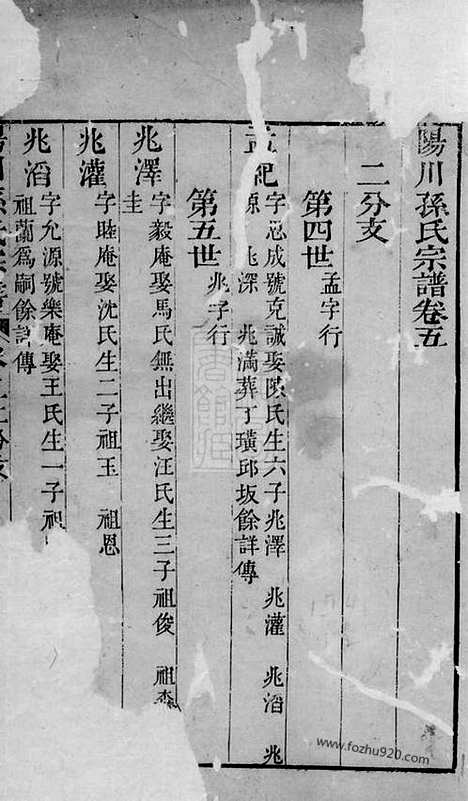 陽川孫氏宗譜卷五
二分支
第四世 孟字行
孟紀 字思成號克誠娶陳氏生六子兆澤 兆灌 兆滔 兆
源 兆深 兆滿葬丁璜邱坂餘詳傳
第五世 兆字行
兆澤 字毅庵娶馬氏無出繼娶汪氏生三子祖俊 祖森
圭
兆灌 字睦庵娶沈氏生二子祖玉 祖恩
兆滔 字允源號樂庵娶王氏生一子祖
祖蘭爲嗣餘詳傳
www.fozhu920.com